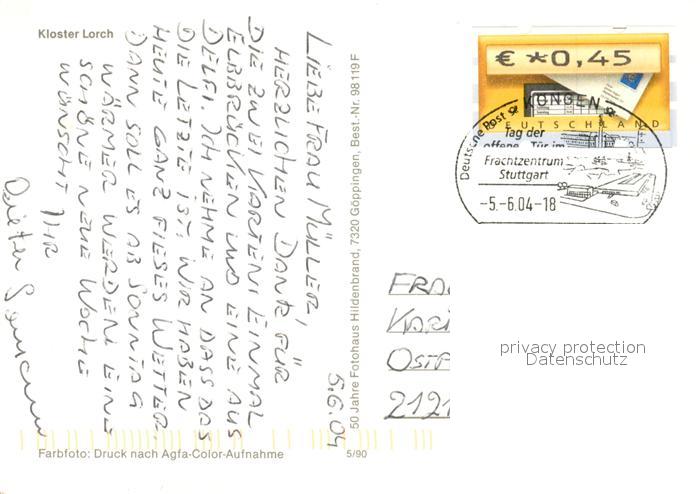 Kloster Lorch
5.6.04
LIEBE FRAU MÜLLER,
HERZLICHEN DANK FÜR
DIE ZWEI KARTEN! EINMAL
ELBBRÜCKEN UND EINE AUS
DELFI. ICH NEHME AN DASS DAS
DIE LETZTE IST, WIR HABEN
HEUTE GANZ FIESES WETTER
DANN SOLL ES AB SONNTAG
WÄRMER WERDEN! EINE
SCHÖNE NEUE WOCHE
WÜNSCHT IHR
Dieter
50 Jahre Fotohaus Hildenbrand, 7320 Göppingen, Best.-Nr. 98119F
Farbfoto: Druck nach Agfa-Color-Aufnahme 5/90
€ *0,45
DEUTSCHLAND
Deutsche Post
Tag der
offene Tür im
Frachtzentrum
Stuttgart
-5.-6.04-18
FRA
KARI
OSTP
2121
privacy protection
Datenschutz